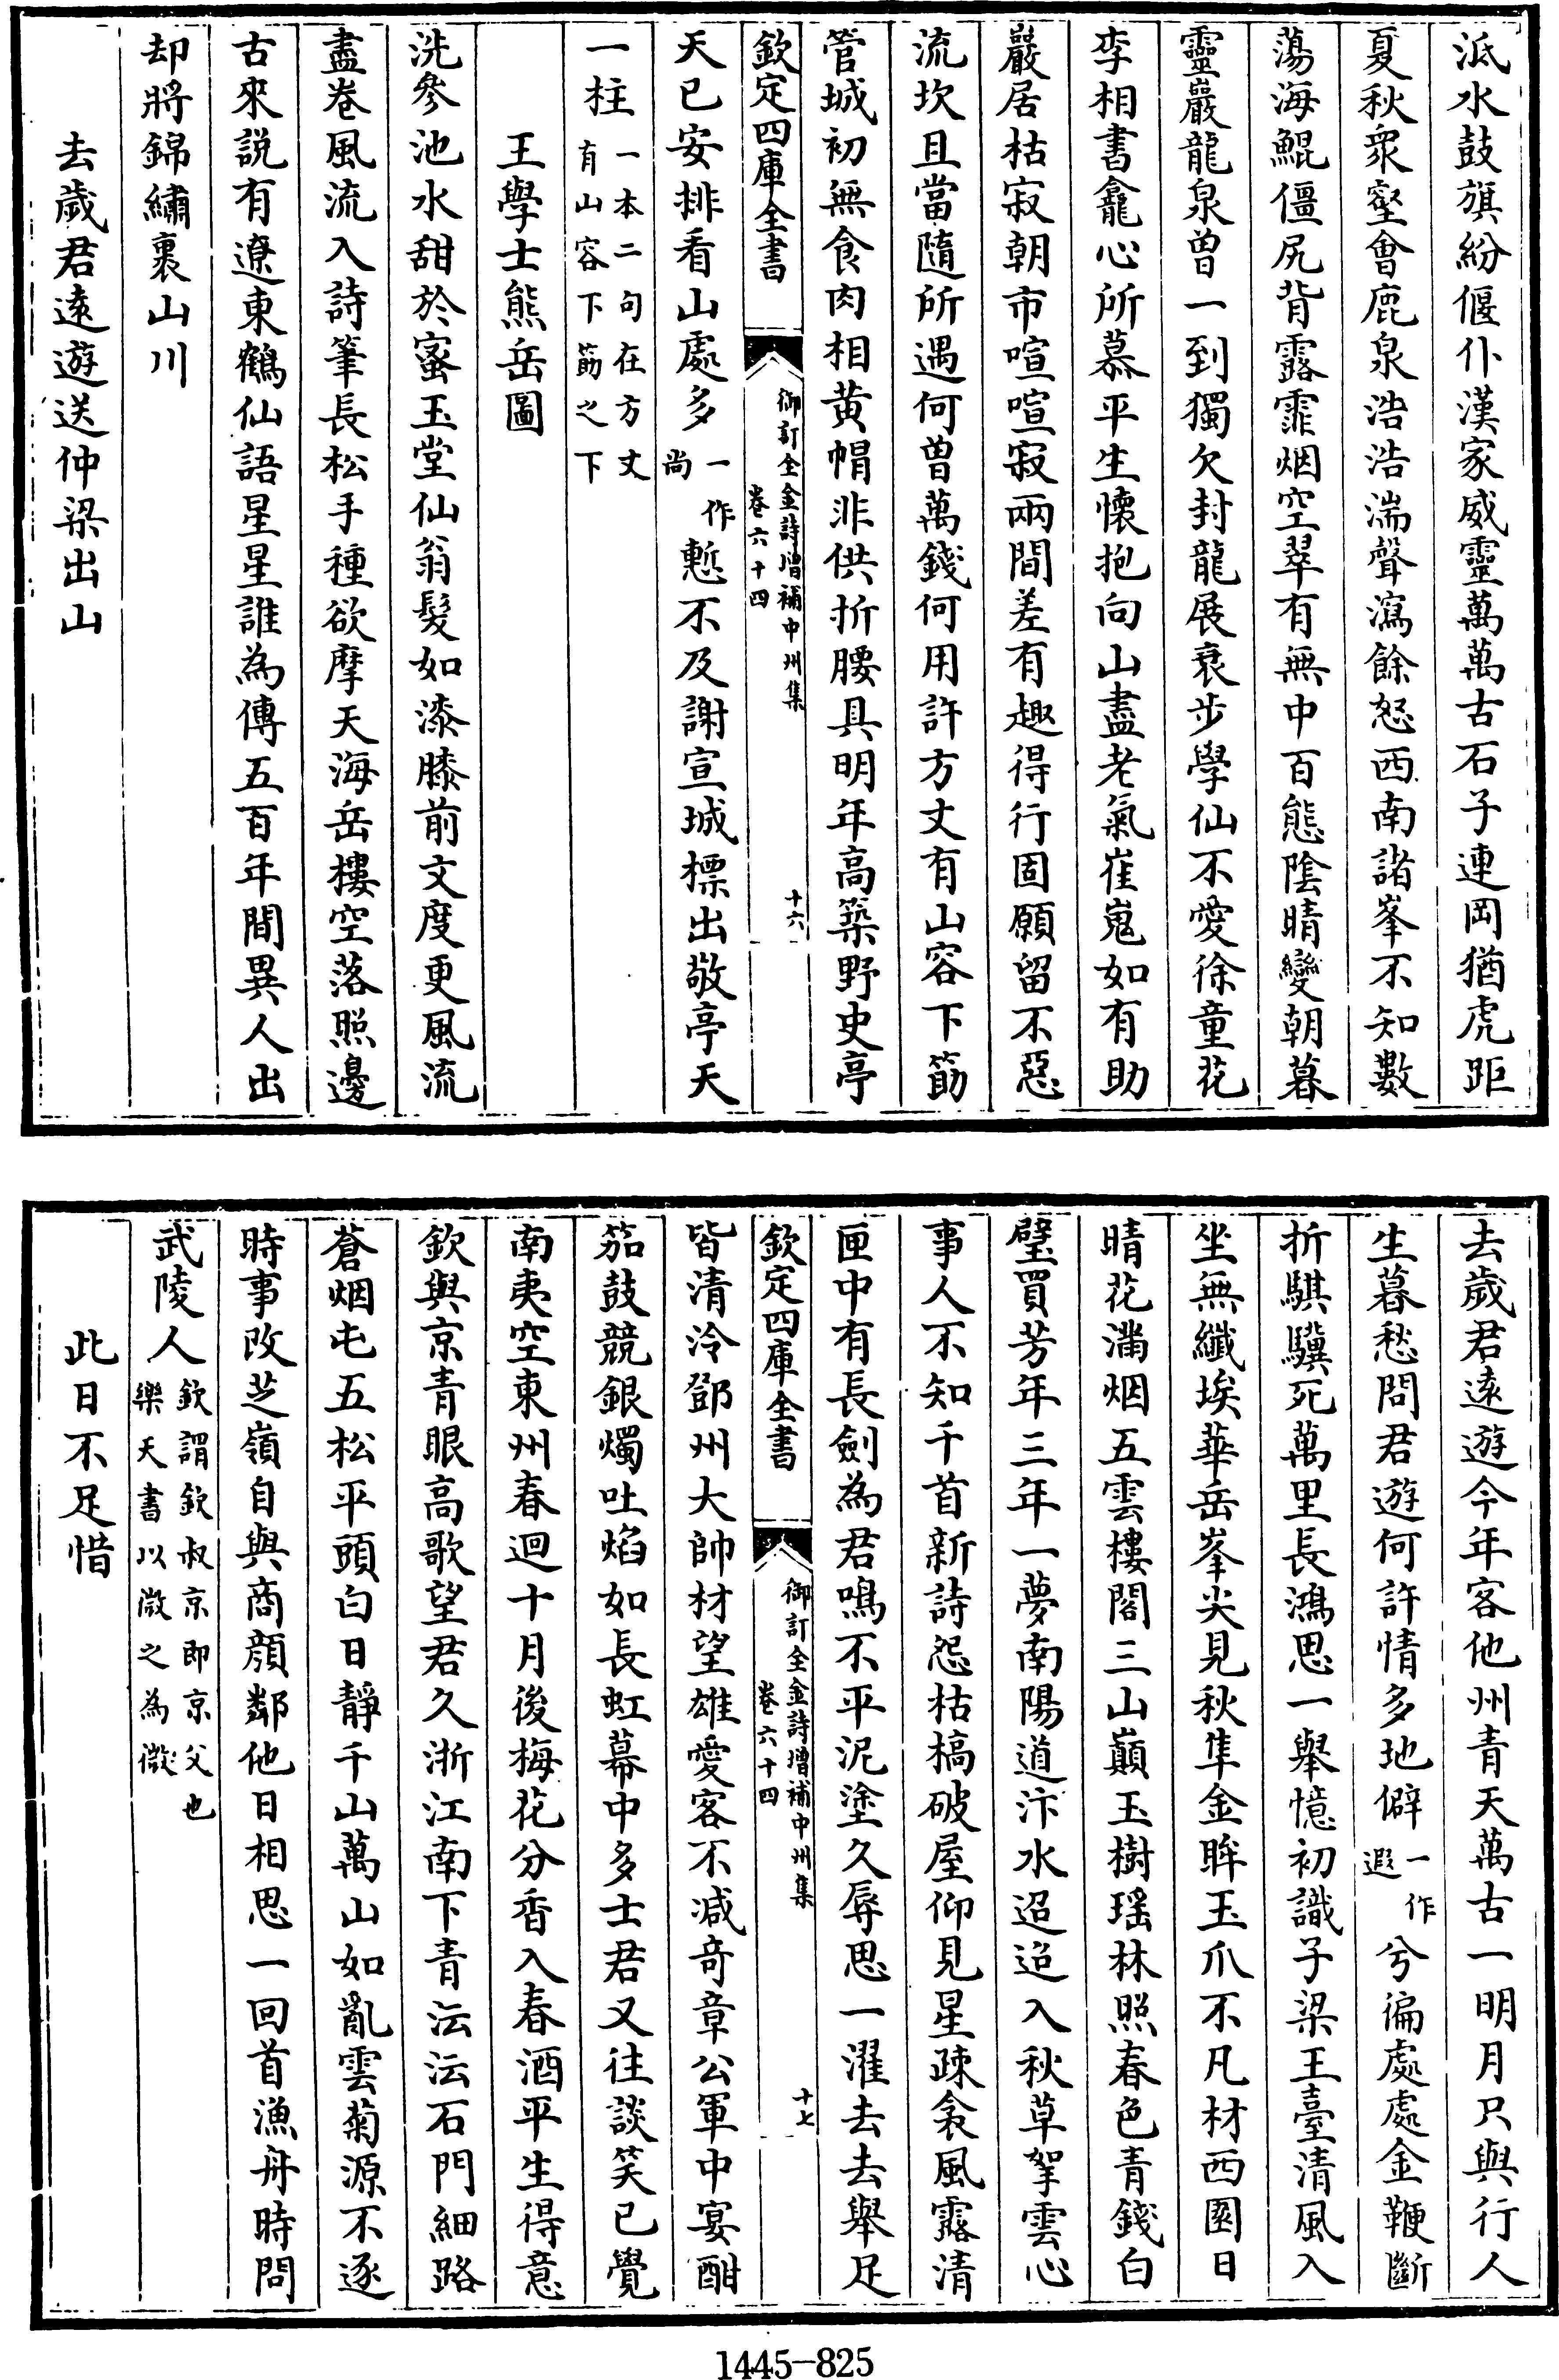 泜水鼓旗紛偃仆漢家威靈萬萬古石子連岡猶虎距
夏秋衆壑會鹿泉浩浩湍聲瀉餘怒西南諸峯不知數
蕩海鯤僵尻背露霏烟空翠有無中百態陰晴變朝暮
靈巖龍泉曾一到獨欠封龍展衰步學仙不愛徐童花
李相書龕心所慕平生懷抱向山盡老氣崔嵬如有助
巖居枯寂朝市喧喧寂兩間差有趣得行固願留不惡
流坎且當隨所遇何曾萬錢何用許方丈有山容下筯
管城初無食肉相黄帽非供折腰具明年高築野史亭
欽定四庫全書
御訂全金詩增補中州集
卷六十四
十六
天已安排看山處多一作尚慙不及謝宣城標出敬亭天
一柱一本二句在方丈有山容下筯之下
王學士熊岳圖
洗參池水甜於蜜玉堂仙翁髮如漆膝前文度更風流
盡卷風流入詩筆長松手種欲摩天海岳樓空落照邊
古來説有遼東鶴仙語星星誰為傳五百年間異人出
却將錦繡裹山川
去歲君遠遊送仲梁出山
去歲君遠遊今年客他州青天萬古一明月只與行人
生暮愁問君遊何許情多地僻一作遐兮徧處處金鞭斷
折騏驥死萬里長鴻思一舉憶初識子梁王臺清風入
坐無纖埃華岳峯尖見秋隼金眸玉爪不凡材西園日
晴花滿烟五雲樓閣三山巔玉樹瑶林照春色青錢白
璧買芳年三年一夢南陽道汴水迢迢入秋草挐雲心
事人不知千首新詩怨枯槁破屋仰見星疎衾風露清
匣中有長劍為君鳴不平泥塗久辱思一濯去去舉足
欽定四庫全書
御訂全金詩增補中州集
卷六十四
十七
皆清泠鄧州大帥材望雄愛客不減竒章公軍中宴酣
笳鼓競銀燭吐焰如長虹幕中多士君又往談笑已覺
南夷空東州春迴十月後梅花分香入春酒平生得意
欽與京青眼高歌望君久浙江南下青沄沄石門細路
蒼烟屯五松平頭白日靜千山萬山如亂雲菊源不逐
時事改芝嶺自與商顔鄰他日相思一回首漁舟時問
武陵人欽謂欽叔京即京父也樂天書以微之為微
此日不足惜
1445-825